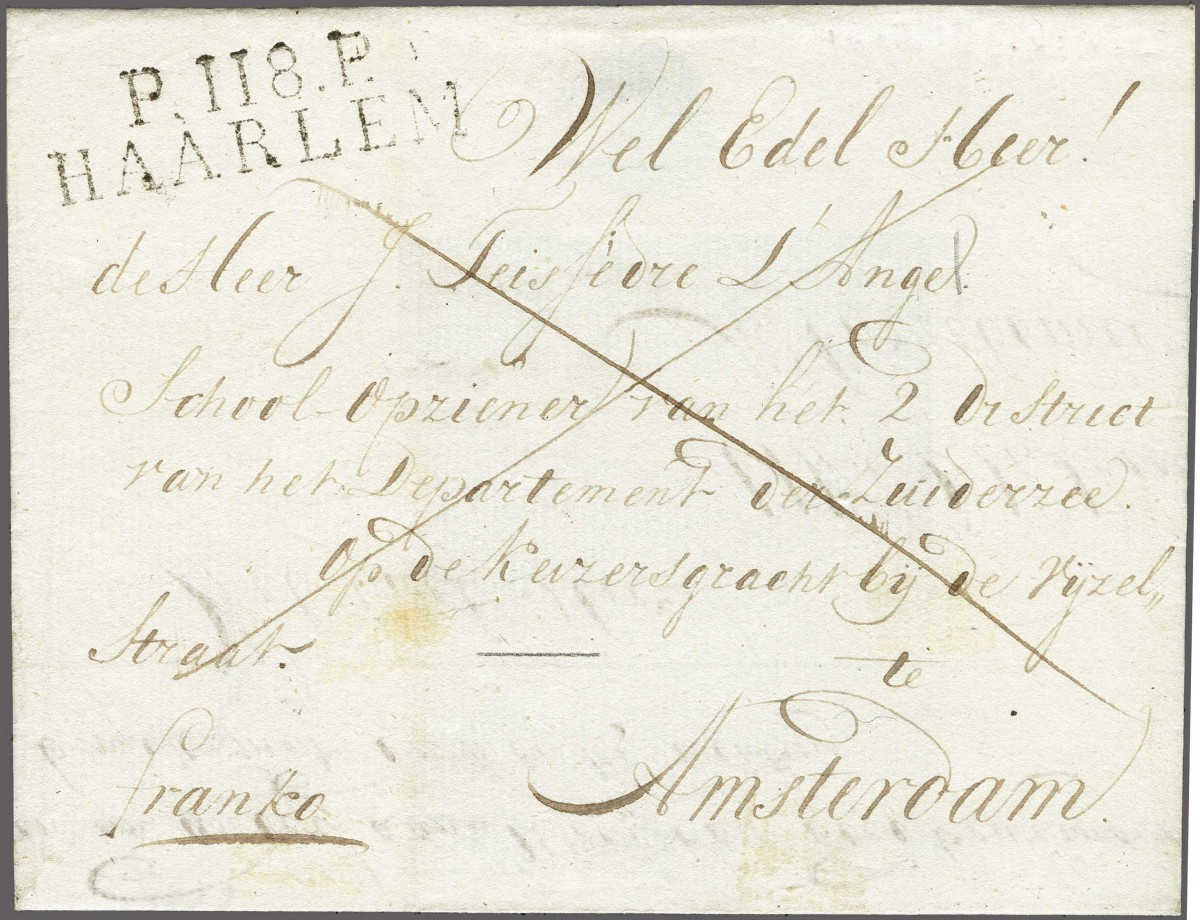 P. 118. P.
HAARLEM
Wel Edel Heer!
de Heer J. Teisfédre L'Ange.
School-Opziener van het 2 District
van het Departement der Zuiderzee.
Op de Keizersgracht bij de Vijzel„
Straat.
te
Amsterdam.
franko